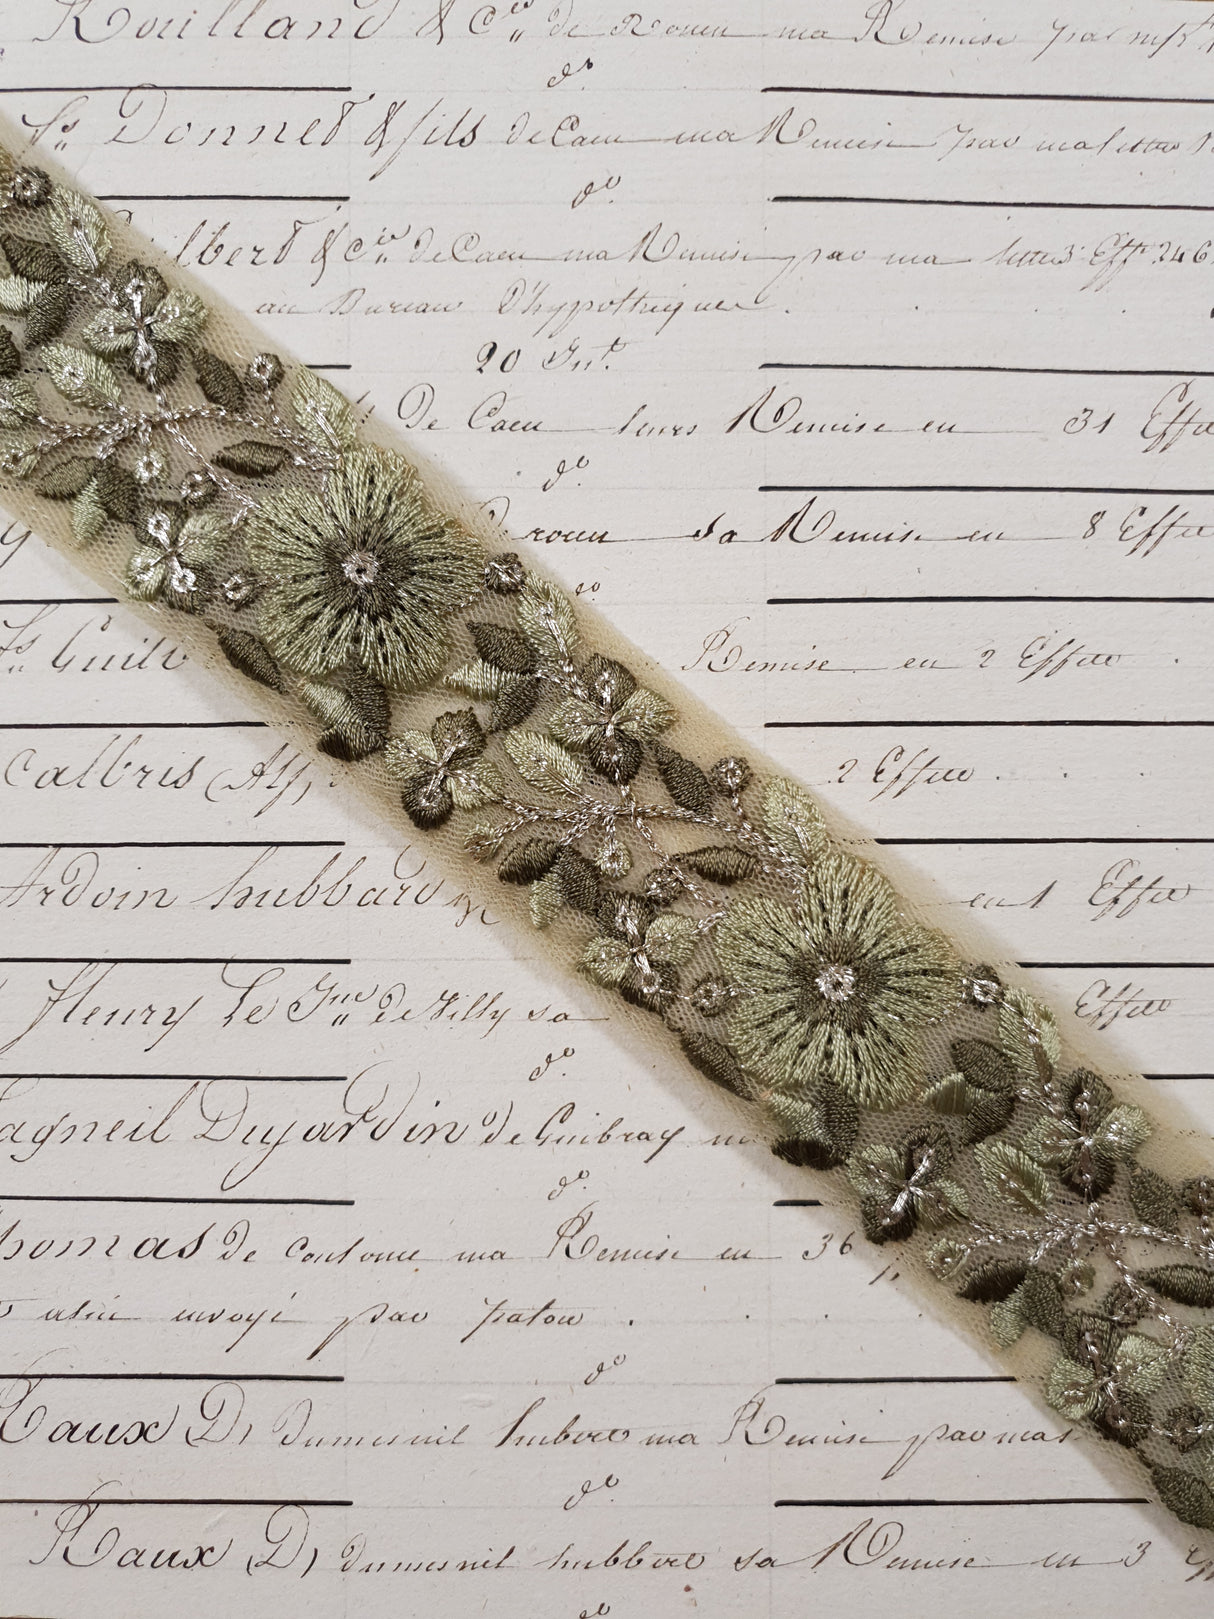 Rouilland & Cie de Rouen ma Remise par
do
Donnet & fils de Caen ma Remise par ma lettre
do
lbert & Cie de Caen ma Remise par ma lettre 3 Effts 246
au Bureau d'hypothèques.
20 Int.
De Caen leurs Remise en 31 Effets
do
rouen sa Remise en 8 Effets
do
Remise en 2 Effets
Calbris (Alf) 2 Effets
Ardoin hubbard & en 1 Effets
fleury Le Jne de Villy sa Effets
do
agneil Dujardin de Guibray
do
homas de ma Remise en 36
envoyé par patou
do
Raux D, dumesnil hubbert ma Remise par mes
do
Raux D, dumesnil hubbert sa Remise en 3